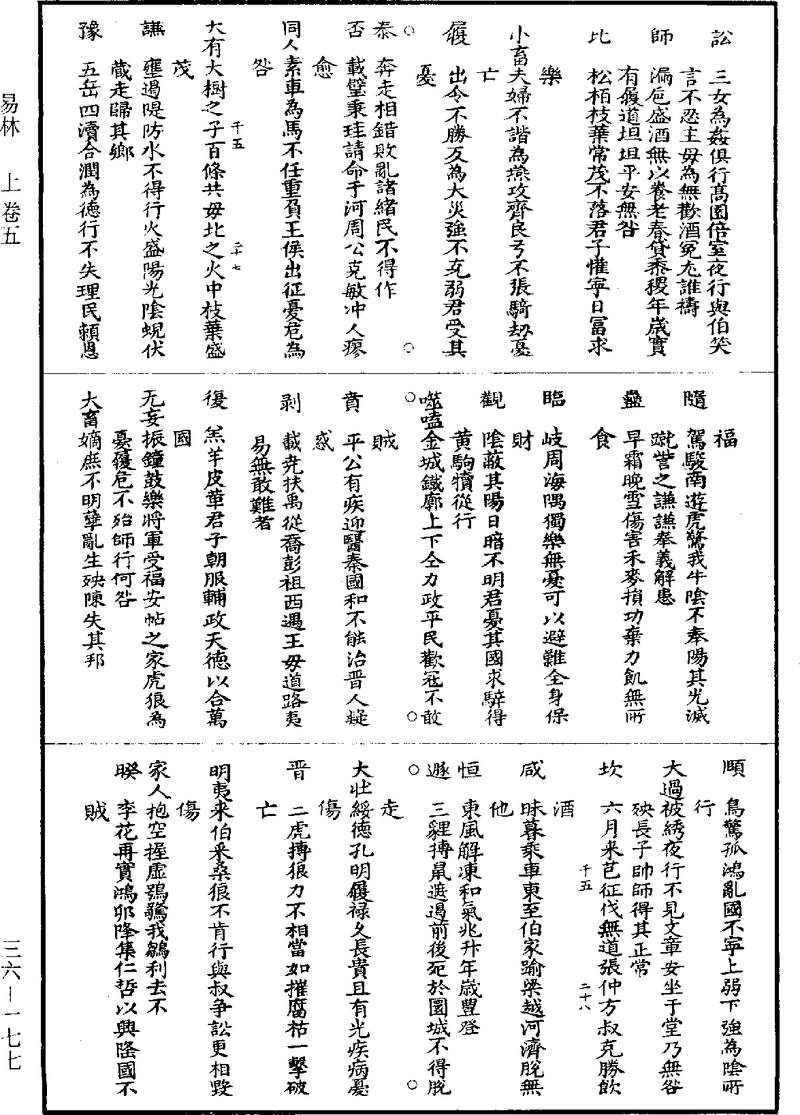 易林　上卷五
三六—一七七
訟　三女為姦俱行髙園倍室夜行與伯笑
言不忍主毋為無歡酒冤尢誰禱
師　漏巵盛酒無以養老春貸黍稷年歲實
有履道坦坦平安無咎
比　松栢枝葉常茂不落君子惟寧日富求
樂
小畜夫婦不諧為燕攻齊良弓不張騎刼憂
亡
履　出令不勝反為大災強不克弱君受其
憂
○泰　奔走相錯敗亂諸緒民不得作○
否　載璧秉珪請命于河周公克敏冲人瘳
愈
同人素車為馬不任重負王侯出征憂危為
咎
大有大樹之子百條共毋北之火中枝葉盛
千五　二千七
茂
謙　壅遏隄防水不得行火盛陽光陰蜺伏
藏走歸其鄉
豫　五岳四瀆合潤為德行不失理民賴恩
福
隨　駕駿南遊虎驚我牛陰不奉陽其光滅
蹴訾之謙謙奉義解患
蠱　早霜晚雪傷害禾麥損功棄力飢無所
食
臨　岐周海隅獨樂無憂可以避難全身保
財
觀　陰蔽其陽日暗不明君憂其國求騂得
黄駒犢從行
○噬嗑金城鐵廓上下仝力政平民歡冦不敢○
賊
賁　平公有疾迎醫秦國和不能治晋人疑
惑
剥　載尭扶禹從喬彭祖西遇王毋道路夷
易無敢難者
復　羔羊皮革君子朝服輔政天德以合萬
國
无妄振鐘鼓樂將軍受福安帖之家虎狼為
憂履危不殆師行何咎
大畜嫡庶不明孽亂生殃陳失其邦
頤　鳥驚孤鴻亂國不寧上弱下強為陰所
行
大過被綉夜行不見文章安坐于堂乃無咎
殃長子帥師得其正常
坎　六月采芑征伐無道張仲方叔克勝飲
千五　二十八
酒
咸　昧暮乘車東至伯家踰梁越河濟脫無
他
恒　東風解凍和氣兆升年歲豐登
○遯　三貍搏鼠遮遏前後死於圜城不得脫○
走
大壯綏德孔明履禄久長貴且有光疾病憂
傷
晋　二虎搏狼力不相當如摧腐枯一擊破
亡
明夷釆伯釆桑狠不肯行與叔争訟更相毀
傷
家人抱空握虚鴞驚我鶵利去不
睽　李花再實鴻卵降集仁哲以興隆國不
賊